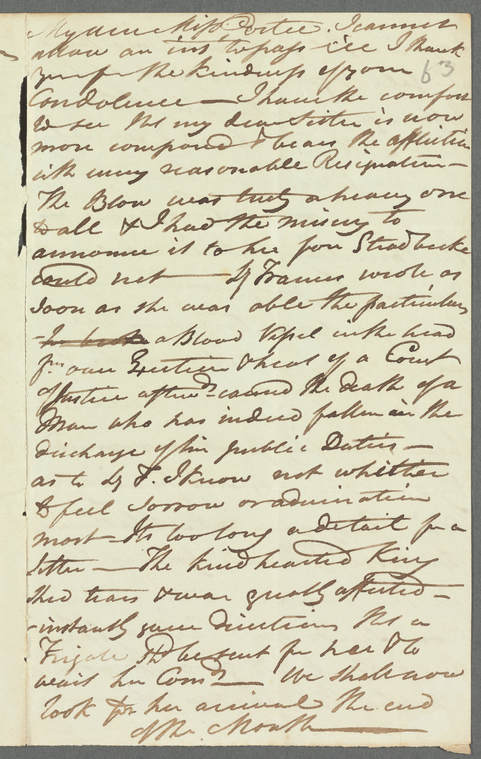 My dear Miss Porter. I cannot
allow an inst to pass 'ere I thank
you for the kindness of your
63
Condolence — I have the comfort
to see tht my dear Sister is now
more composed & bears the affliction
with every reasonable Resignation —
The Blow was truly a heavy one
to all & I had the misery to
announce it to her for Stradbroke
could not — Ly Frances wrote as
soon as she was able the particulars
a Blood Vessel in the head
fm over Exertion & heat of a Court
of Justice afterwds caused the death of a
Man who has indeed fallen in the
discharge of his public Duties —
as to Ly F. I know not whether
to feel sorrow or admiration
most — Its too long a detail for a
letter — The kind hearted King
shed tears & was greatly affected —
instantly gave directions tht a
Frigate shd be sent for her & to
wait her Comds — We shall now
look for her arrival the end
of the Month —